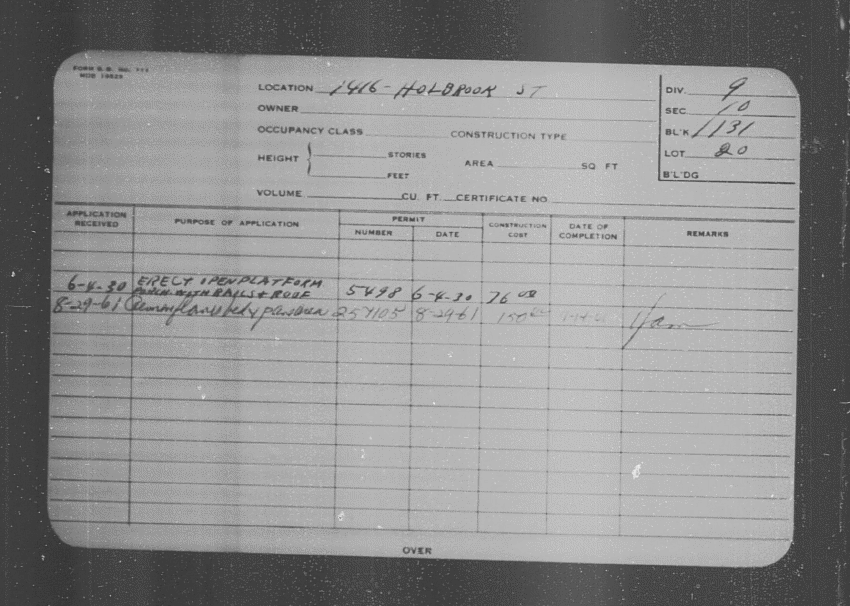 FORM B.B. No. 111
MOD 19625
LOCATION 1416 - HOLBROOK ST
DIV. 9
OWNER
SEC 10
OCCUPANCY CLASS CONSTRUCTION TYPE
BL'K 1131
HEIGHT STORIES AREA SQ FT
LOT 20
FEET
B'L'DG
VOLUME CU. FT. CERTIFICATE NO
APPLICATION RECEIVED PURPOSE OF APPLICATION PERMIT CONSTRUCTION COST DATE OF COMPLETION REMARKS
NUMBER DATE
6-4-30 ERECT OPEN PLATFORM
PORCH WITH RAILS & ROOF 5498 6-4-30 76 00
8-29-61 8-29-61 150
OVER